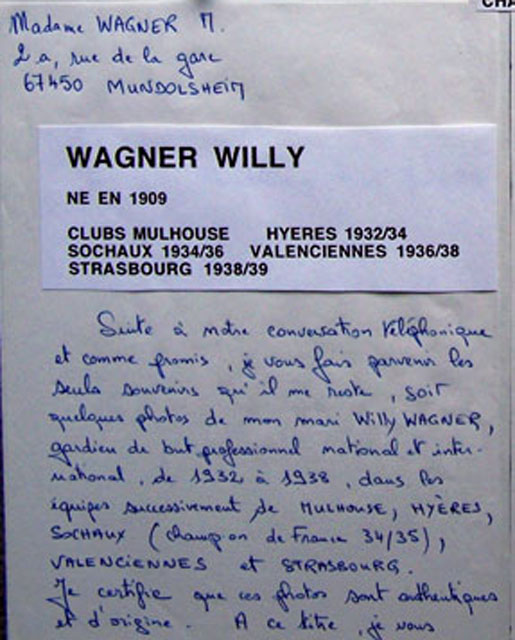 CHA
Madame WAGNER M.
2a, rue de la gare
67450 MUNDOLSHEIM
WAGNER WILLY
NE EN 1909
CLUBS MULHOUSE HYERES 1932/34
SOCHAUX 1934/36 VALENCIENNES 1936/38
STRASBOURG 1938/39
Suite à notre conversation téléphonique
et comme promis, je vous fais parvenir les
seuls souvenirs qu'il me reste, soit
quelques photos de mon mari Willy WAGNER,
gardien de but professionnel national et inter-
national, de 1932 à 1938, dans les
équipes successivement de MULHOUSE, HYÈRES,
SOCHAUX (champion de France 34/35),
VALENCIENNES et STRASBOURG.
Je certifie que ces photos sont authentiques
et d'origine. A ce titre, je vous